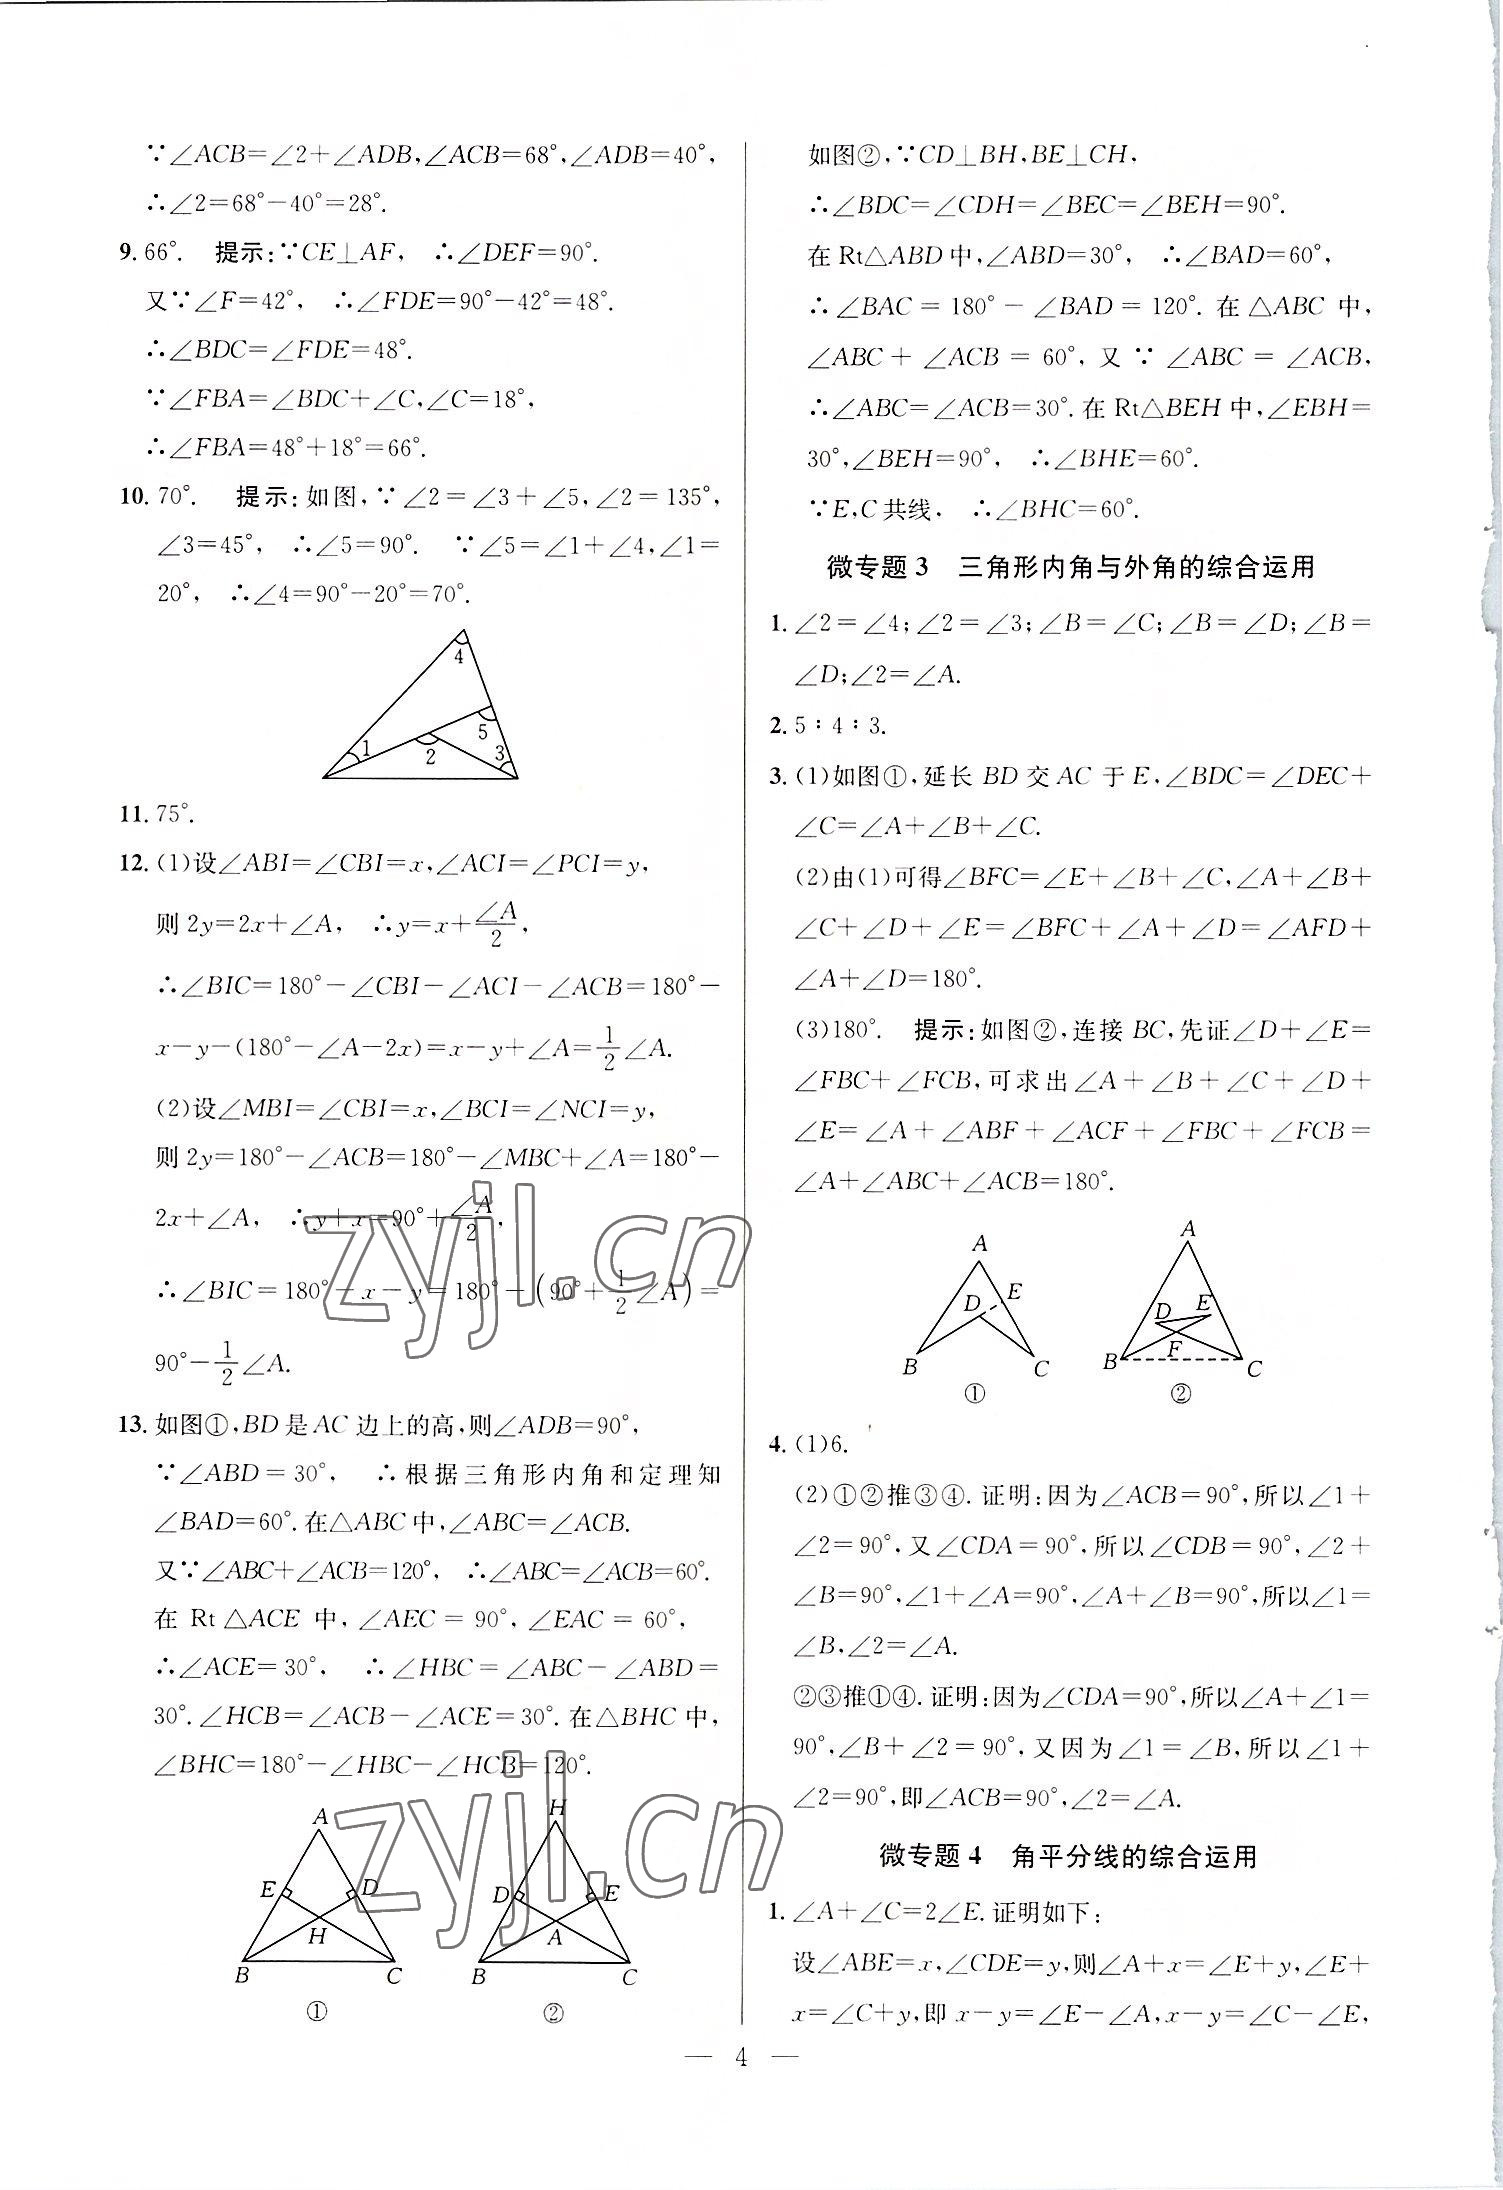 ∵∠ACB=∠2+∠ADB,∠ACB=68°,∠ADB=40°,
∴∠2=68°-40°=28°.
9. 66°. 提示:∵CE⊥AF, ∴∠DEF=90°.
又∵∠F=42°, ∴∠FDE=90°-42°=48°.
∴∠BDC=∠FDE=48°.
∵∠FBA=∠BDC+∠C,∠C=18°,
∴∠FBA=48°+18°=66°.
10. 70°. 提示:如图,∵∠2=∠3+∠5,∠2=135°,
∠3=45°, ∴∠5=90°. ∵∠5=∠1+∠4,∠1=
20°, ∴∠4=90°-20°=70°.
4
1
2
5
3
11. 75°.
12. (1)设∠ABI=∠CBI=x,∠ACI=∠PCI=y,
则 2y=2x+∠A, ∴y=x+∠A/2,
∴∠BIC=180°-∠CBI-∠ACI-∠ACB=180°-
x-y-(180°-∠A-2x)=x-y+∠A=1/2∠A.
(2)设∠MBI=∠CBI=x,∠BCI=∠NCI=y,
则 2y=180°-∠ACB=180°-∠MBC+∠A=180°-
2x+∠A, ∴y+x=90°+∠A/2,
∴∠BIC=180°-x-y=180°-(90°+1/2∠A)=
90°-1/2∠A.
13. 如图①,BD是AC边上的高,则∠ADB=90°,
∵∠ABD=30°, ∴根据三角形内角和定理知
∠BAD=60°.在△ABC中,∠ABC=∠ACB.
又∵∠ABC+∠ACB=120°, ∴∠ABC=∠ACB=60°.
在 Rt△ACE 中,∠AEC=90°,∠EAC=60°,
∴∠ACE=30°, ∴∠HBC=∠ABC-∠ABD=
30°.∠HCB=∠ACB-∠ACE=30°.在△BHC中,
∠BHC=180°-∠HBC-∠HCB=120°.
A
E
D
H
B
C
①
H
D
E
A
B
C
②
如图②,∵CD⊥BH,BE⊥CH,
∴∠BDC=∠CDH=∠BEC=∠BEH=90°.
在Rt△ABD中,∠ABD=30°, ∴∠BAD=60°,
∴∠BAC=180°-∠BAD=120°.在△ABC中,
∠ABC+∠ACB=60°,又∵∠ABC=∠ACB,
∴∠ABC=∠ACB=30°.在Rt△BEH中,∠EBH=
30°,∠BEH=90°, ∴∠BHE=60°.
∵E,C共线, ∴∠BHC=60°.
微专题3 三角形内角与外角的综合运用
1. ∠2=∠4;∠2=∠3;∠B=∠C;∠B=∠D;∠B=
∠D;∠2=∠A.
2. 5∶4∶3.
3. (1)如图①,延长BD交AC于E,∠BDC=∠DEC+
∠C=∠A+∠B+∠C.
(2)由(1)可得∠BFC=∠E+∠B+∠C,∠A+∠B+
∠C+∠D+∠E=∠BFC+∠A+∠D=∠AFD+
∠A+∠D=180°.
(3)180°. 提示:如图②,连接BC,先证∠D+∠E=
∠FBC+∠FCB,可求出∠A+∠B+∠C+∠D+
∠E=∠A+∠ABF+∠ACF+∠FBC+∠FCB=
∠A+∠ABC+∠ACB=180°.
A
D
E
B
C
①
A
D
E
F
B
C
②
4. (1)6.
(2)①②推③④.证明:因为∠ACB=90°,所以∠1+
∠2=90°,又∠CDA=90°,所以∠CDB=90°,∠2+
∠B=90°,∠1+∠A=90°,∠A+∠B=90°,所以∠1=
∠B,∠2=∠A.
②③推①④.证明:因为∠CDA=90°,所以∠A+∠1=
90°,∠B+∠2=90°,又因为∠1=∠B,所以∠1+
∠2=90°,即∠ACB=90°,∠2=∠A.
微专题4 角平分线的综合运用
1. ∠A+∠C=2∠E.证明如下:
设∠ABE=x,∠CDE=y,则∠A+x=∠E+y,∠E+
x=∠C+y,即 x-y=∠E-∠A,x-y=∠C-∠E,
— 4 —
zyjl.cn
zyjl.cn